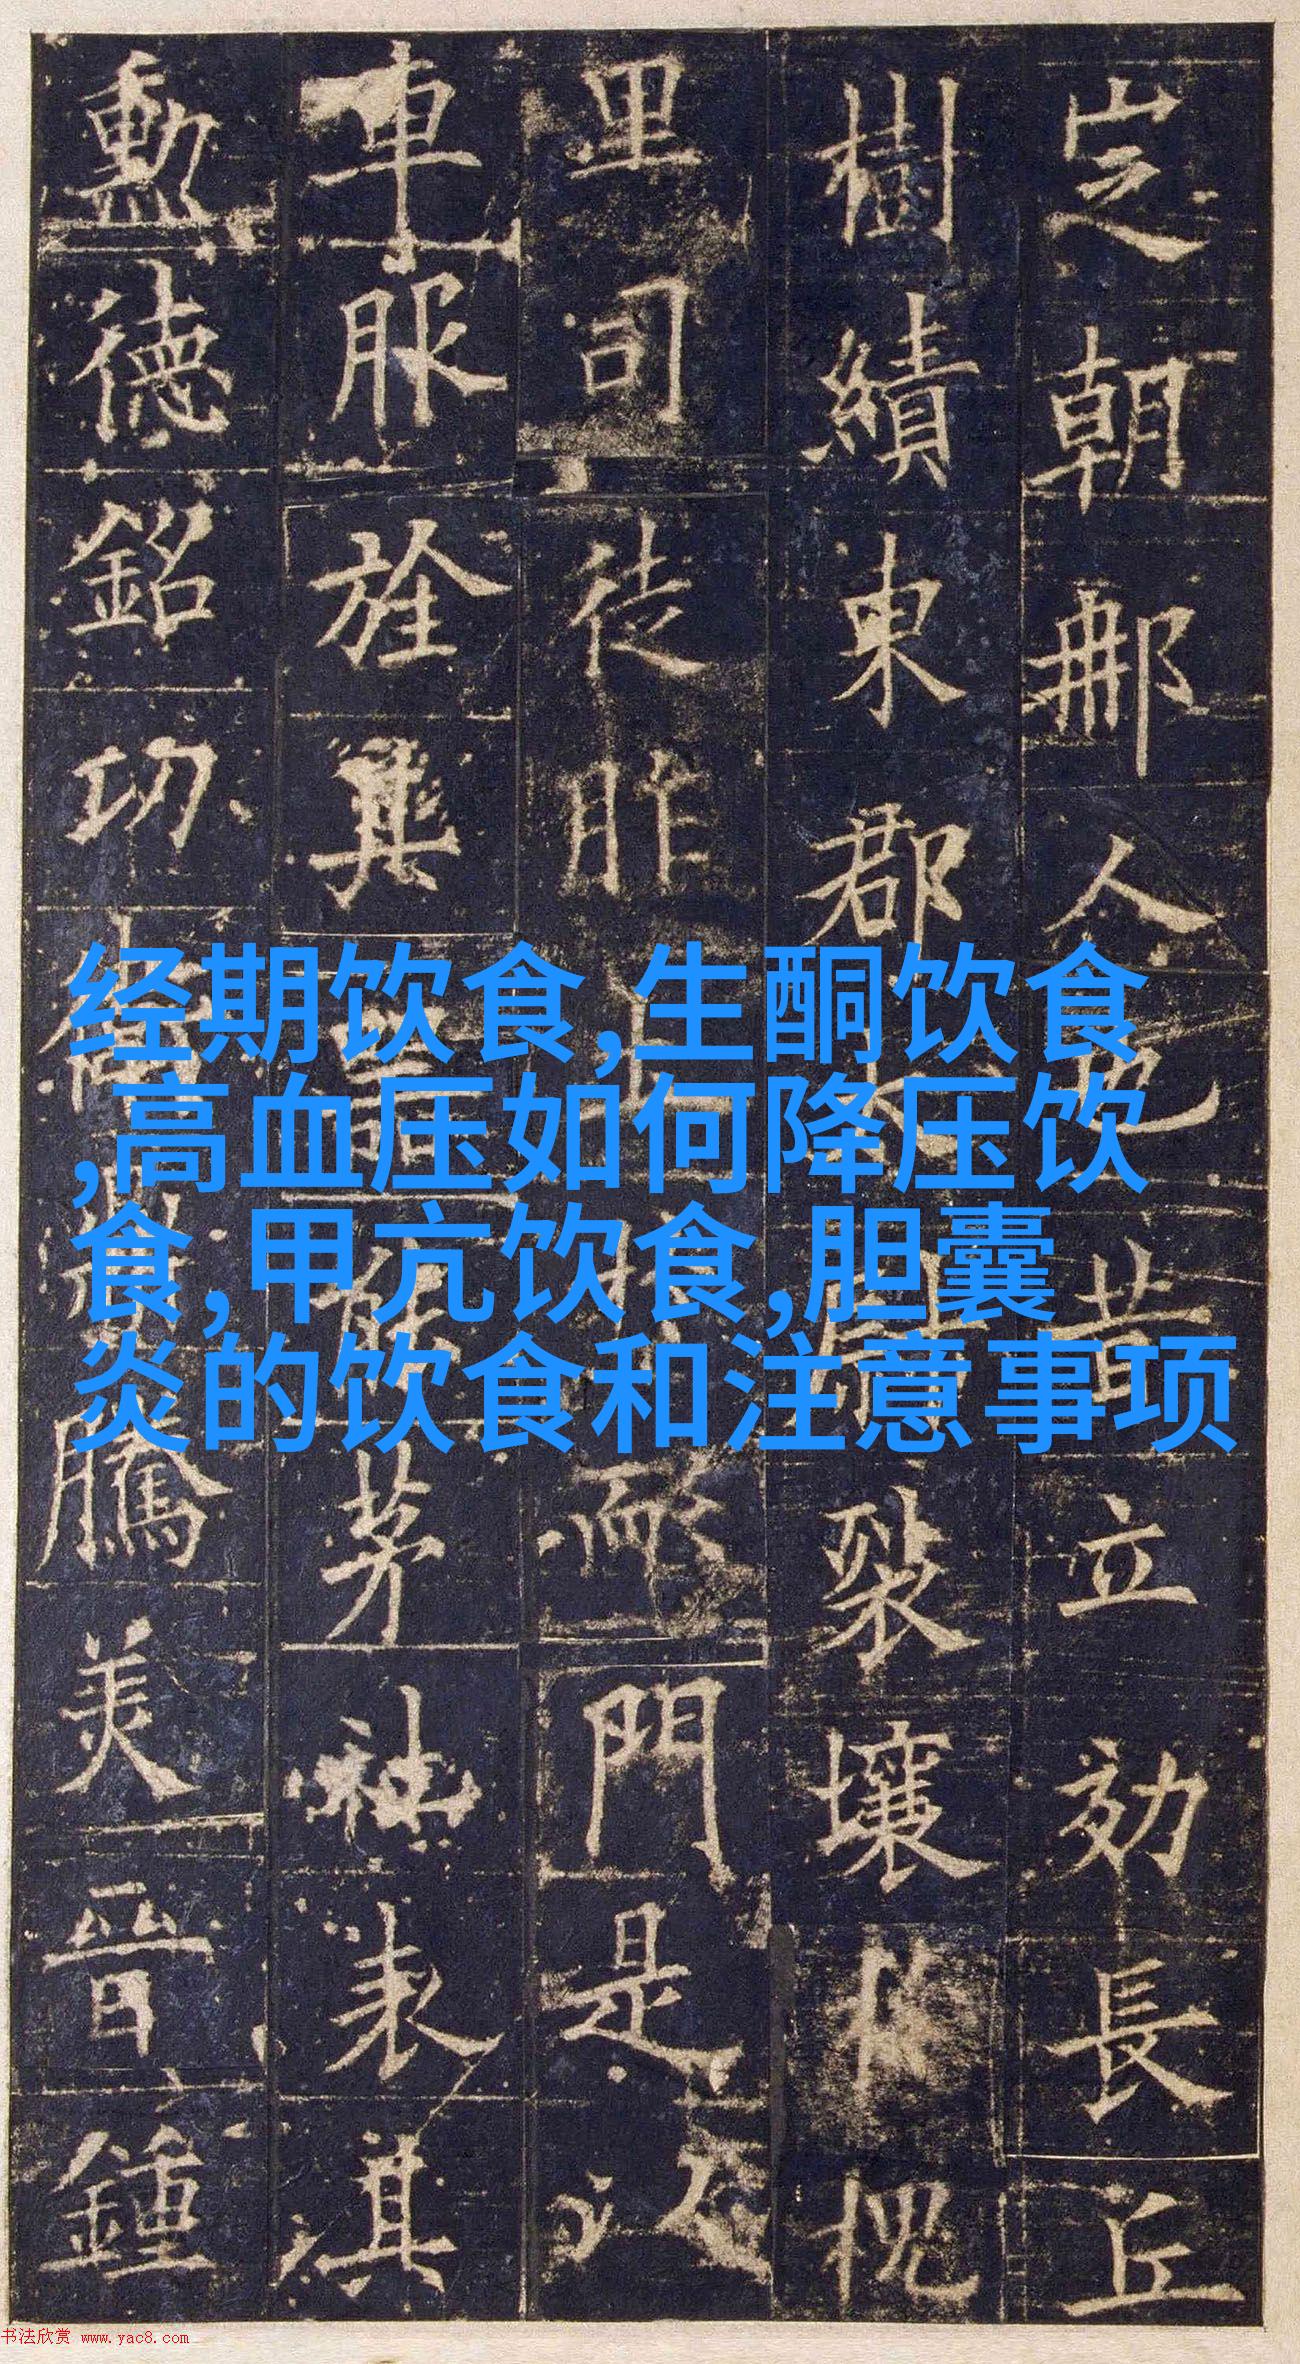 经期饮食,生酮饮食
,高血压如何降压饮
食,甲亢饮食,胆囊
炎的饮食和注意事项
定朝䣝人也昔立効長丘
樹績東郡太裂壤槐
里司徒胙土門是
車服旌其器茅社表淇
勳德銘功騰美晉鍾
书法欣赏 www.yac8.com